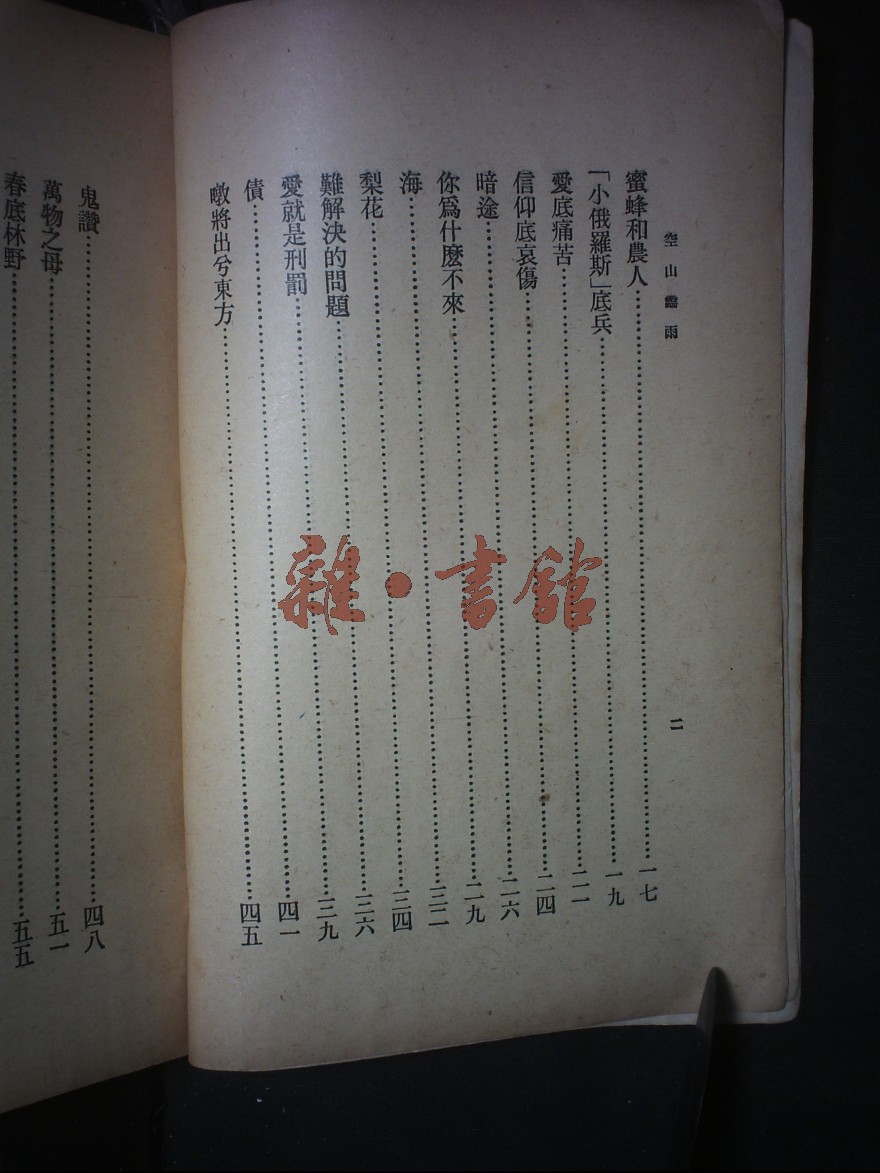 空山靈雨
二
蜜蜂和農人……一七
「小俄羅斯」底兵……一九
愛底痛苦……二一
信仰底哀傷……二四
暗途……二六
你爲什麽不來……二九
海……三二
梨花……三四
難解決的問題……三六
愛就是刑罰……三九
債……四一
暾將出兮東方……四五
鬼讚……四八
萬物之母……五一
春底林野……五五
雜·書館